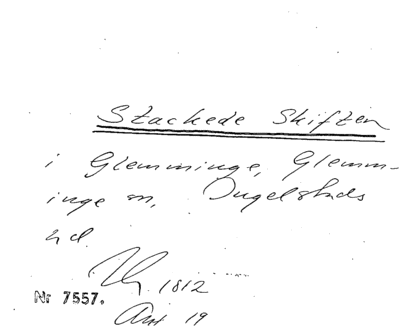 Stackede Skiften
i Glemminge, Glemm-
inge sn, Ingelstads
hd.
1812
Nr 7557.
Ant 19